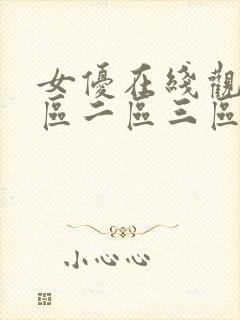 女優在綫觀
區二區三區
小心心